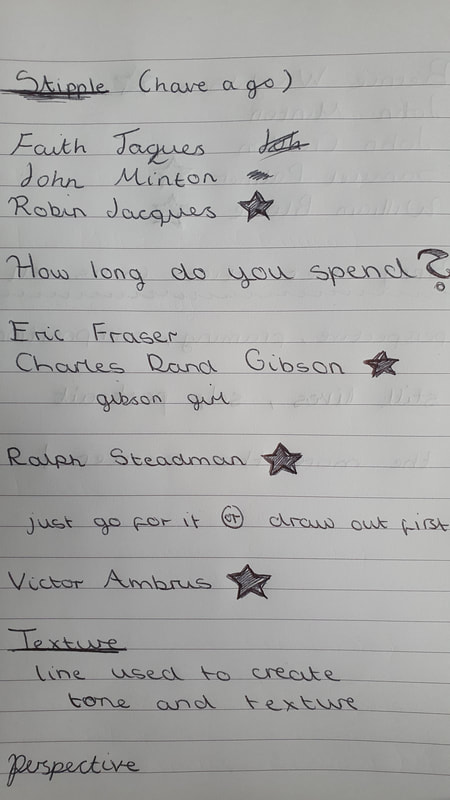 Stipple (have a go)
Faith Jaques
John Minton
Robin Jacques
How long do you spend?
Eric Fraser
Charles Rand Gibson
gibson girl
Ralph Steadman
just go for it or draw out first
Victor Ambrus
Texture
line used to create
tone and texture
perspective